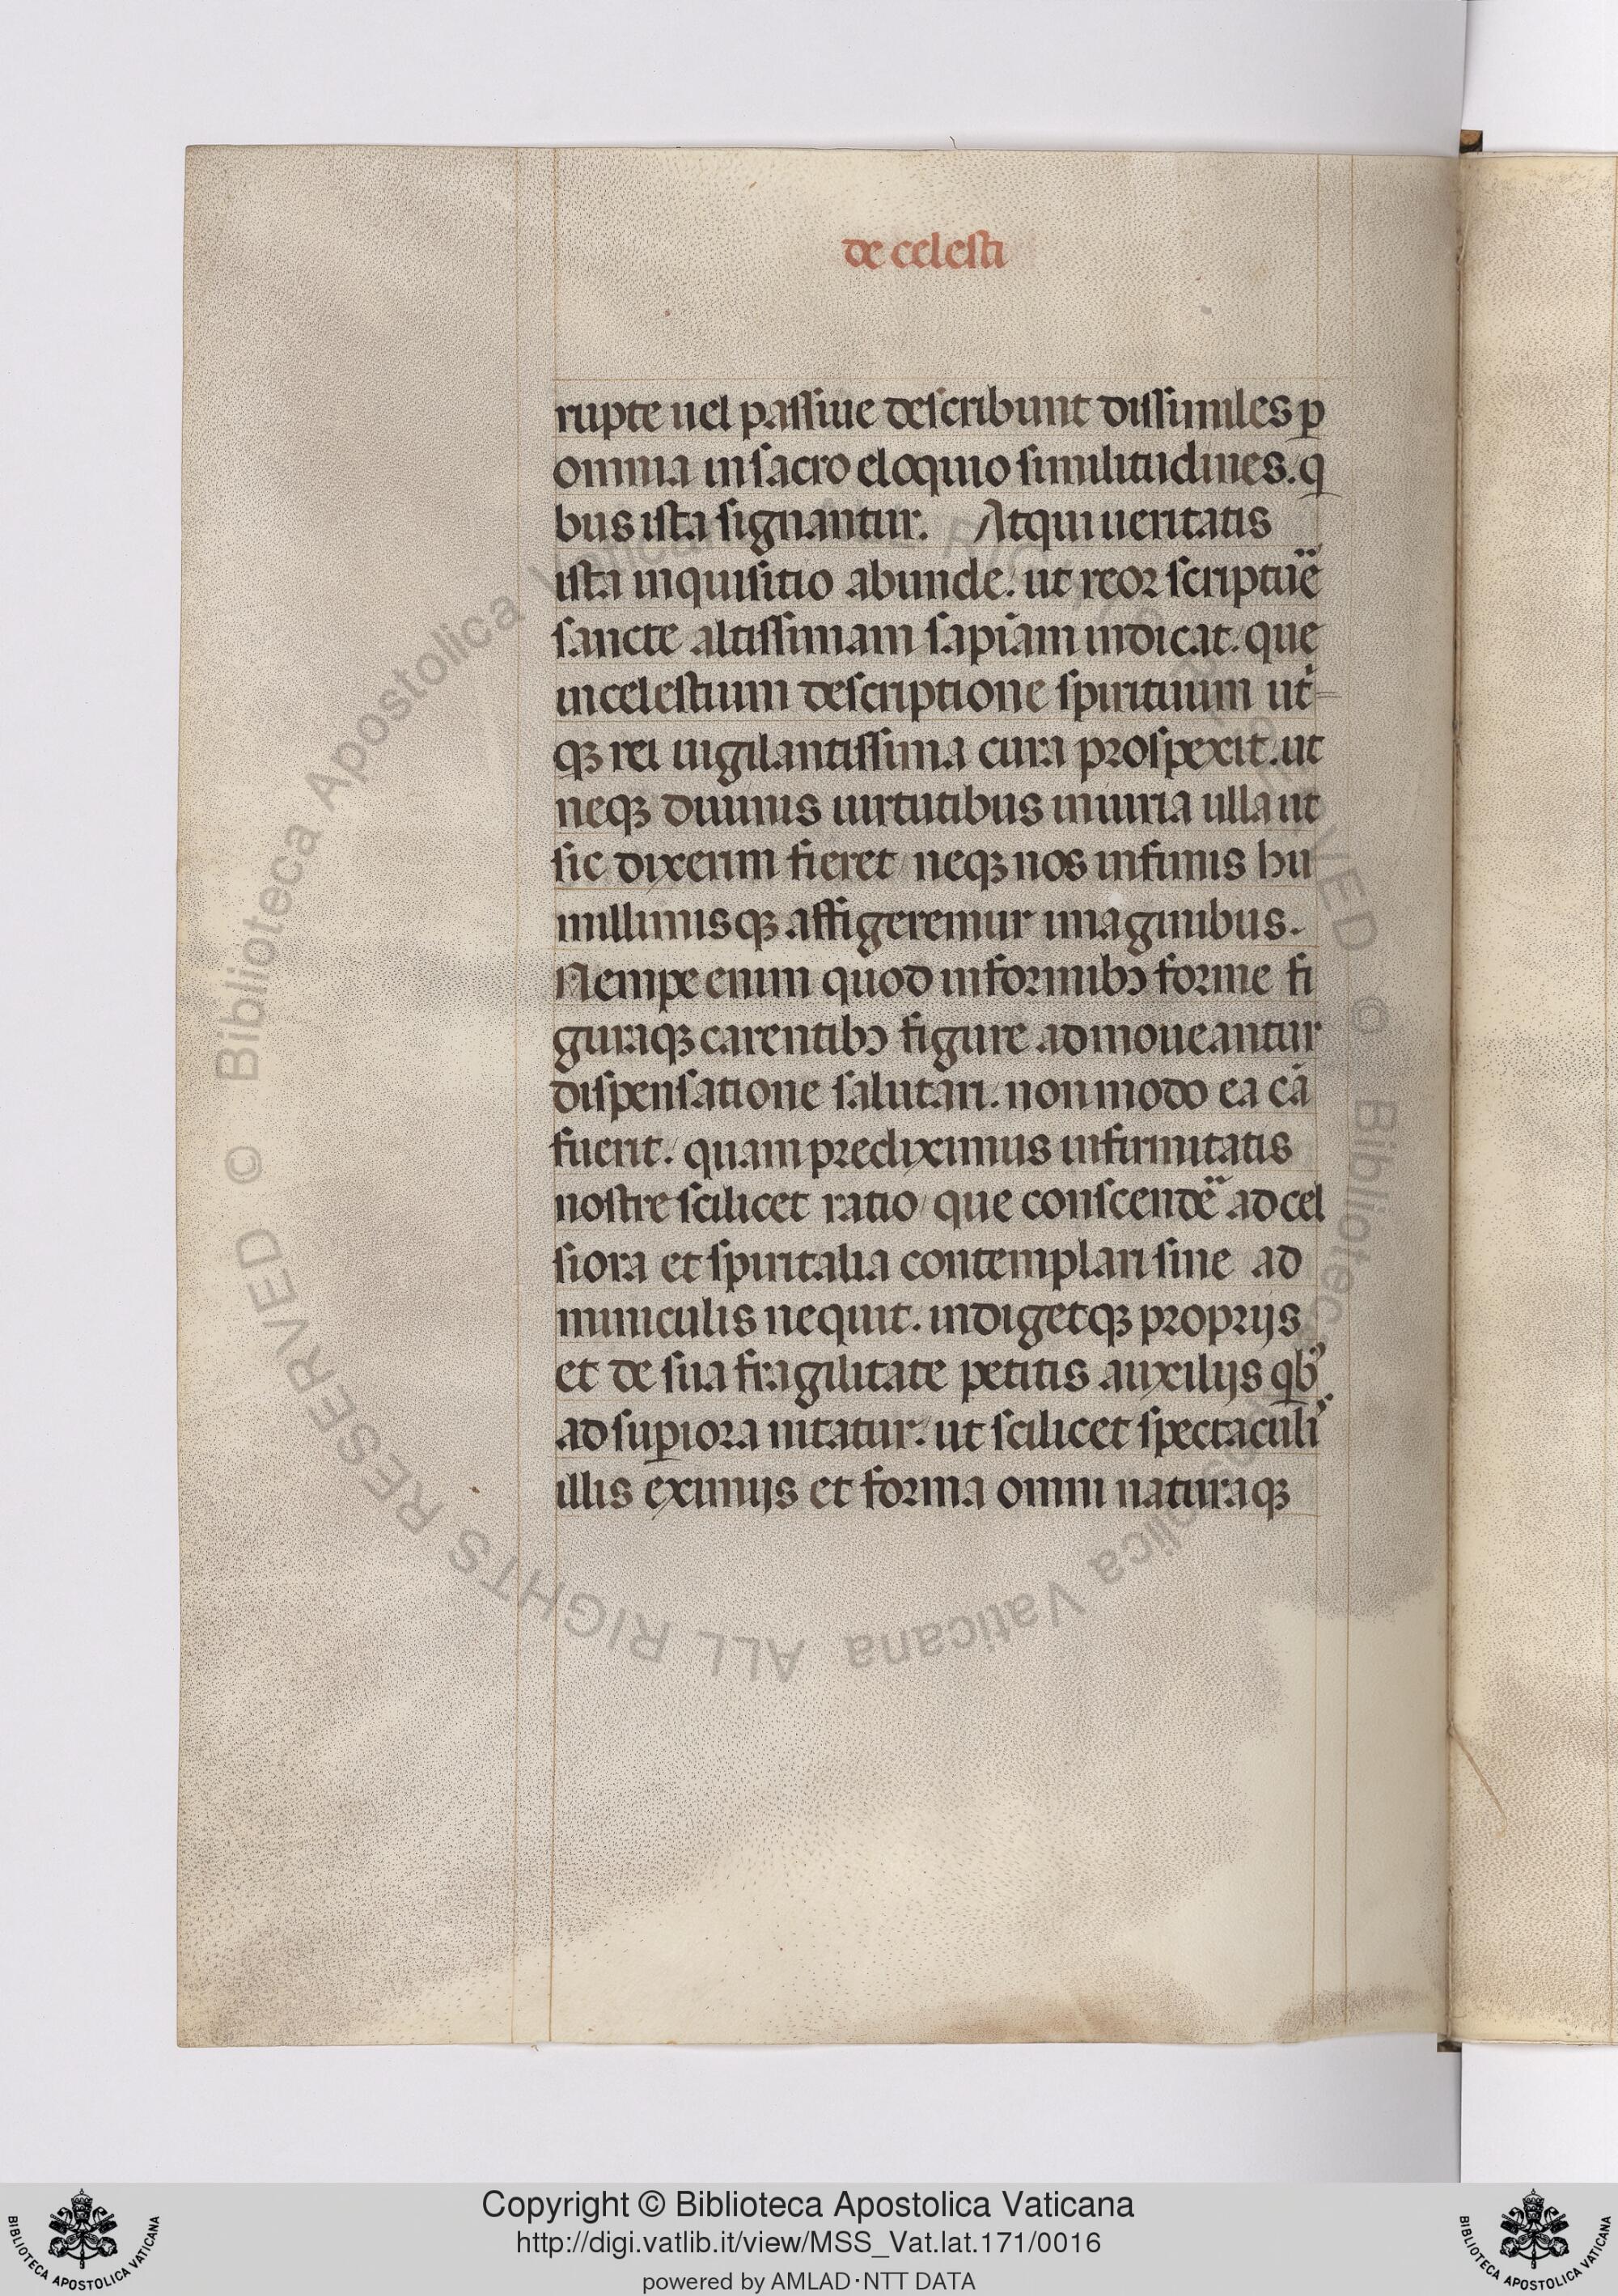 de celesti
rupte uel passiue describunt dissimiles ꝑ
omnia in sacro eloquio similitudines. ꝗ
bus ista signantur. Atqui ueritatis
ista inquisitio abunde. ut reor scriptur̃e
sancte altissimam sapīam indicat. que
in celestium descriptione spirituum ut͛-
qꝫ rei uigilantissima cura prospexit. ut
neqꝫ diuinis uirtutibus iniuria ulla ut
sic dixerim fieret / neqꝫ nos infimis hu
millimisqꝫ affigeremur imaginibus.
Nempe enim quod informibꝰ forme fi
guraqꝫ carentibꝰ figure admoueantur
dispensatione salutari. non modo ea cā
fuerit. quam prediximus infirmitatis
nostre scilicet ratio / que conscendẽ ad cel
siora et spiritalia contemplari sine ad
miniculis nequit. indigetqꝫ proprijs
et de sua fragilitate petitis auxilijs qbꝰ
ad suꝑiora nitatur. ut scilicet spectaculiꝰ
illis eximijs et forma omni naturaqꝫ
Biblioteca Apostolica Vaticana ALL RIGHTS RESERVED © Biblioteca Apostolica Vaticana ALL RIGHTS RESERVED ©
Copyright © Biblioteca Apostolica Vaticana
http://digi.vatlib.it/view/MSS_Vat.lat.171/0016
powered by AMLAD·NTT DATA
BIBLIOTECA APOSTOLICA VATICANA
BIBLIOTECA APOSTOLICA VATICANA